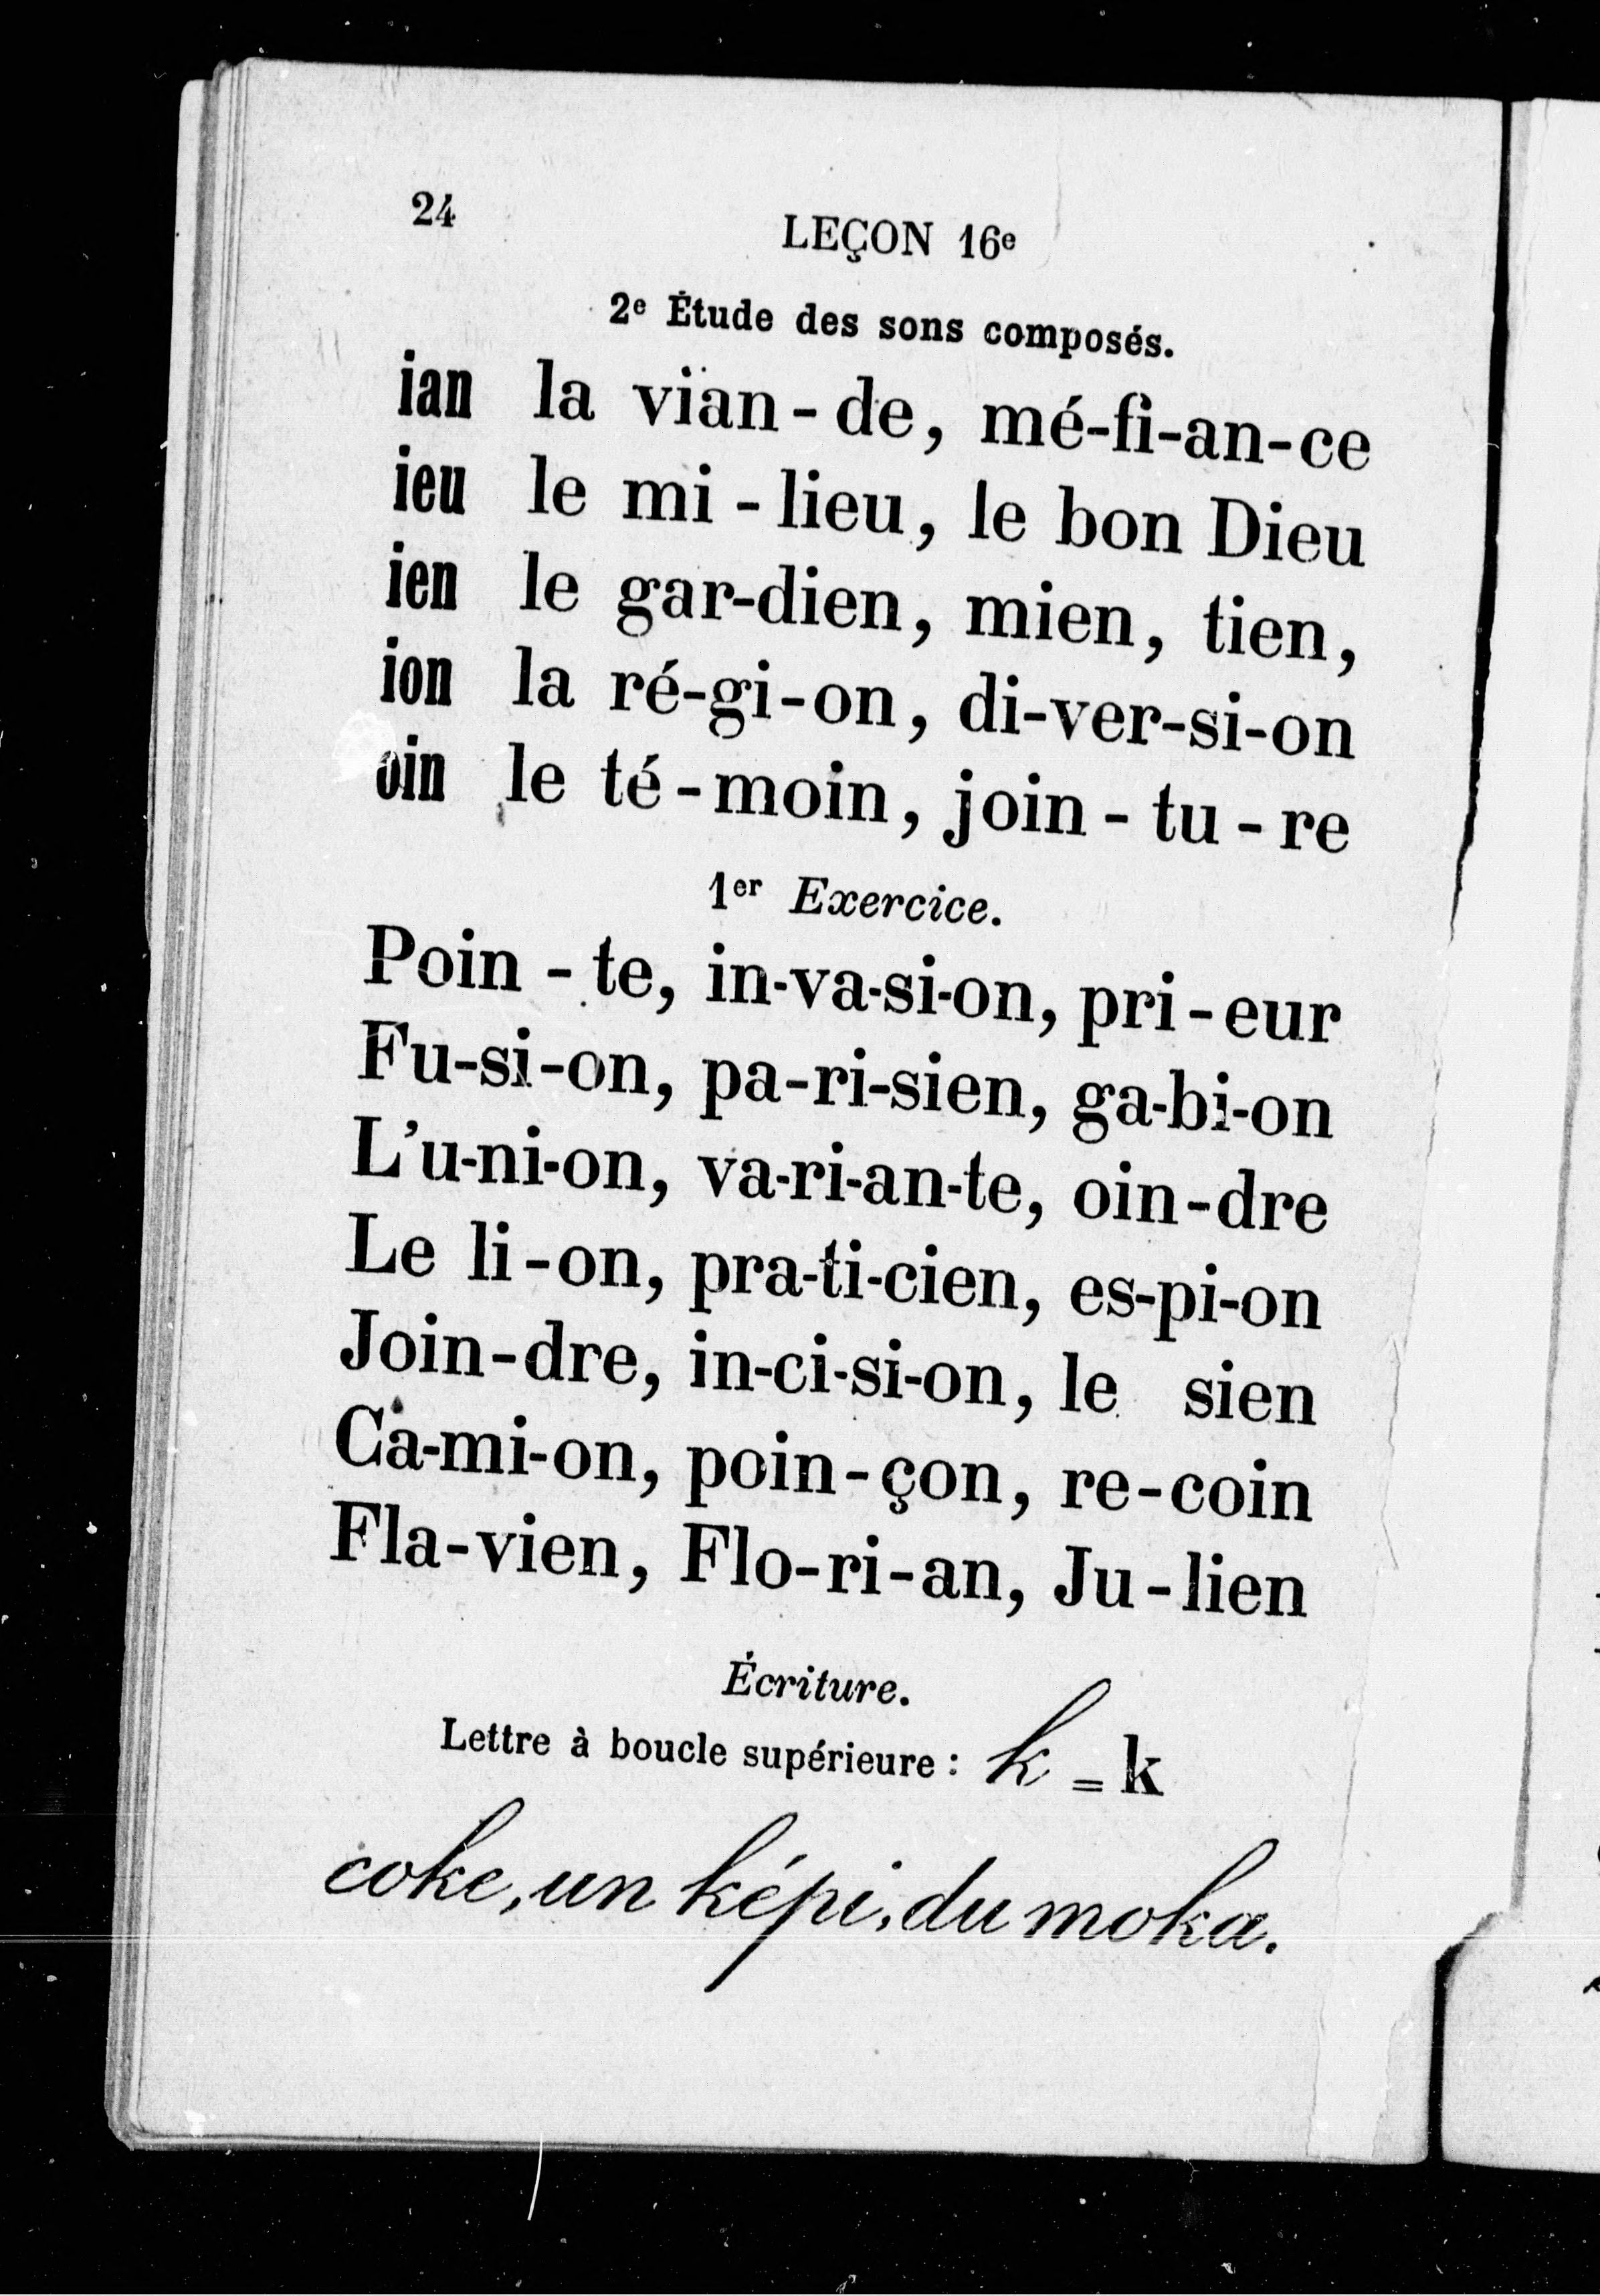 24
LEÇON 16e
2e Étude des sons composés.
ian la vian-de, mé-fi-an-ce
ieu le mi-lieu, le bon Dieu
ien le gar-dien, mien, tien,
ion la ré-gi-on, di-ver-si-on
oin le té-moin, join-tu-re
1er Exercice.
Poin-te, in-va-si-on, pri-eur
Fu-si-on, pa-ri-sien, ga-bi-on
L'u-ni-on, va-ri-an-te, oin-dre
Le li-on, pra-ti-cien, es-pi-on
Join-dre, in-ci-si-on, le sien
Ca-mi-on, poin-çon, re-coin
Fla-vien, Flo-ri-an, Ju-lien
Écriture.
Lettre à boucle supérieure : k = k
coke, un képi, du moka.